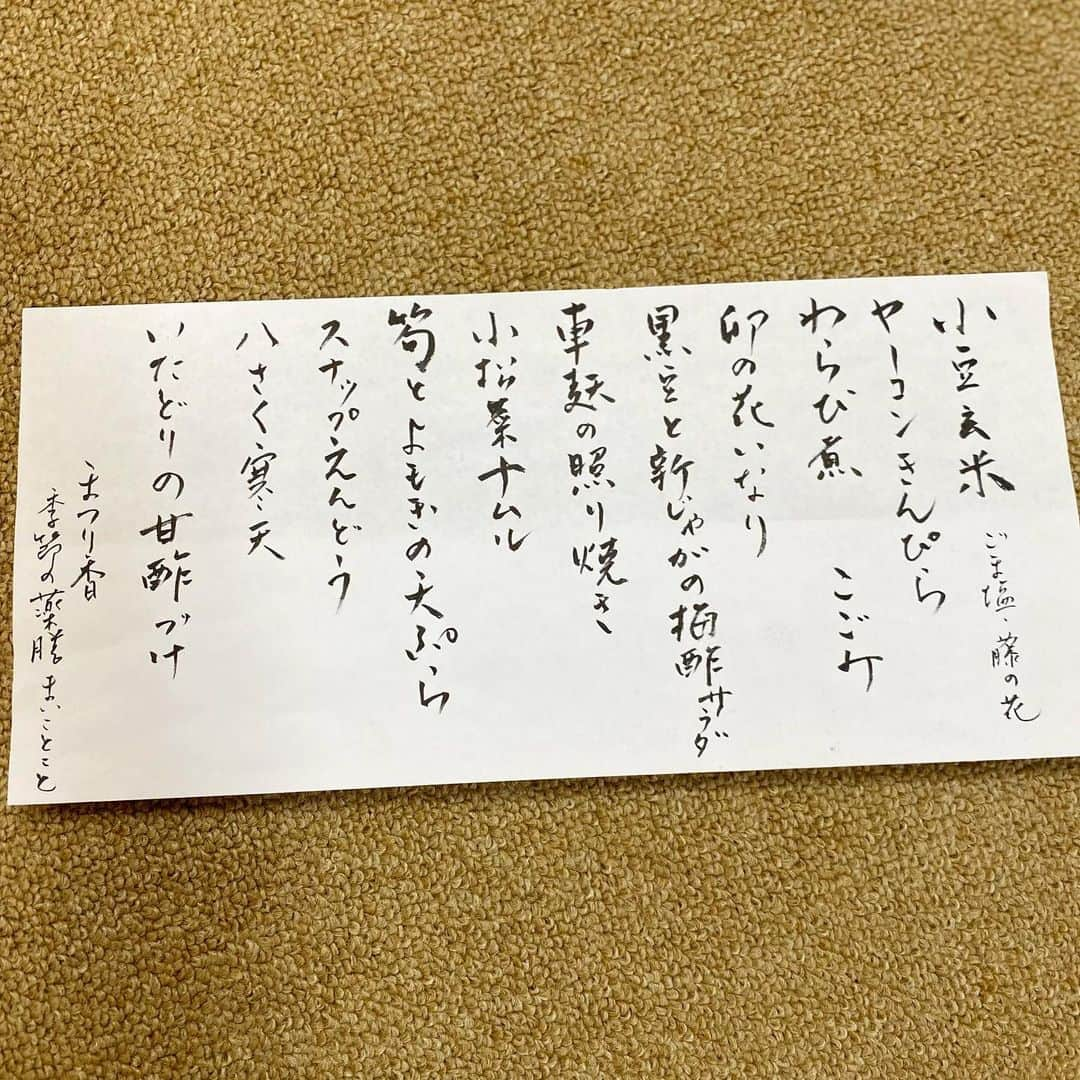 小豆玄米
ごま塩、藤の花
ヤーコンきんぴら
わらび煮 こごみ
卯の花いなり
黒豆と新じゃがの梅酢サラダ
車麸の照り焼き
小松菜ナムル
筍とよもぎの天ぷら
スナップえんどう
八さく寒天
いたどりの甘酢づけ
まつり香
季節の薬膳 まいことこと